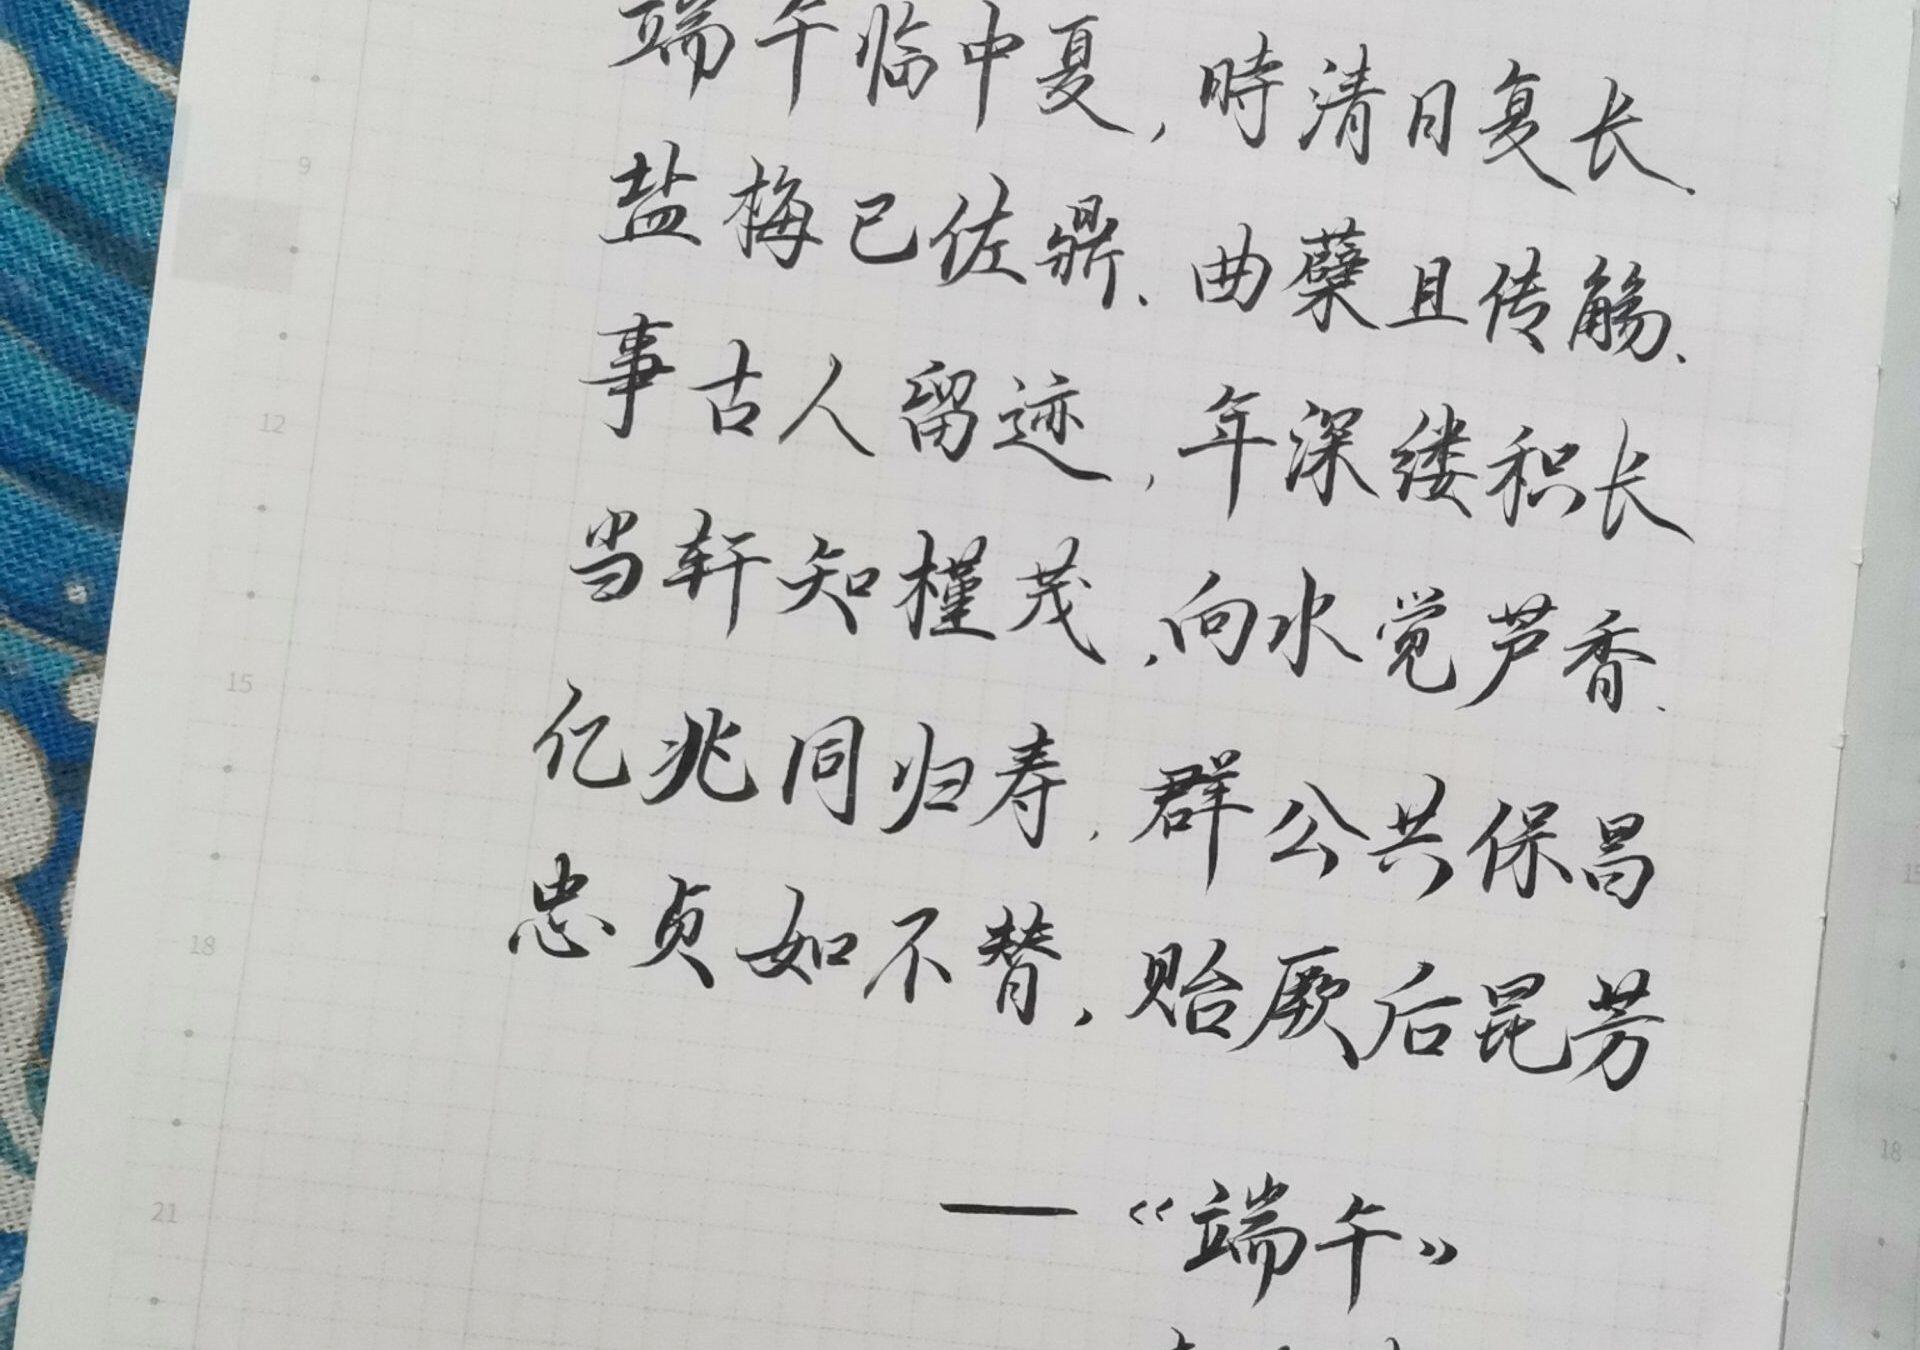 端午临中夏，時清日复长．
盐梅已佐鼎、曲蘖且传觞．
事古人留迹，年深缕积长
当轩知槿茂，向水觉芦香．
亿兆同归寿，群公共保昌
忠贞如不替，贻厥后昆芳
—《端午》
9
12
15
18
21
18